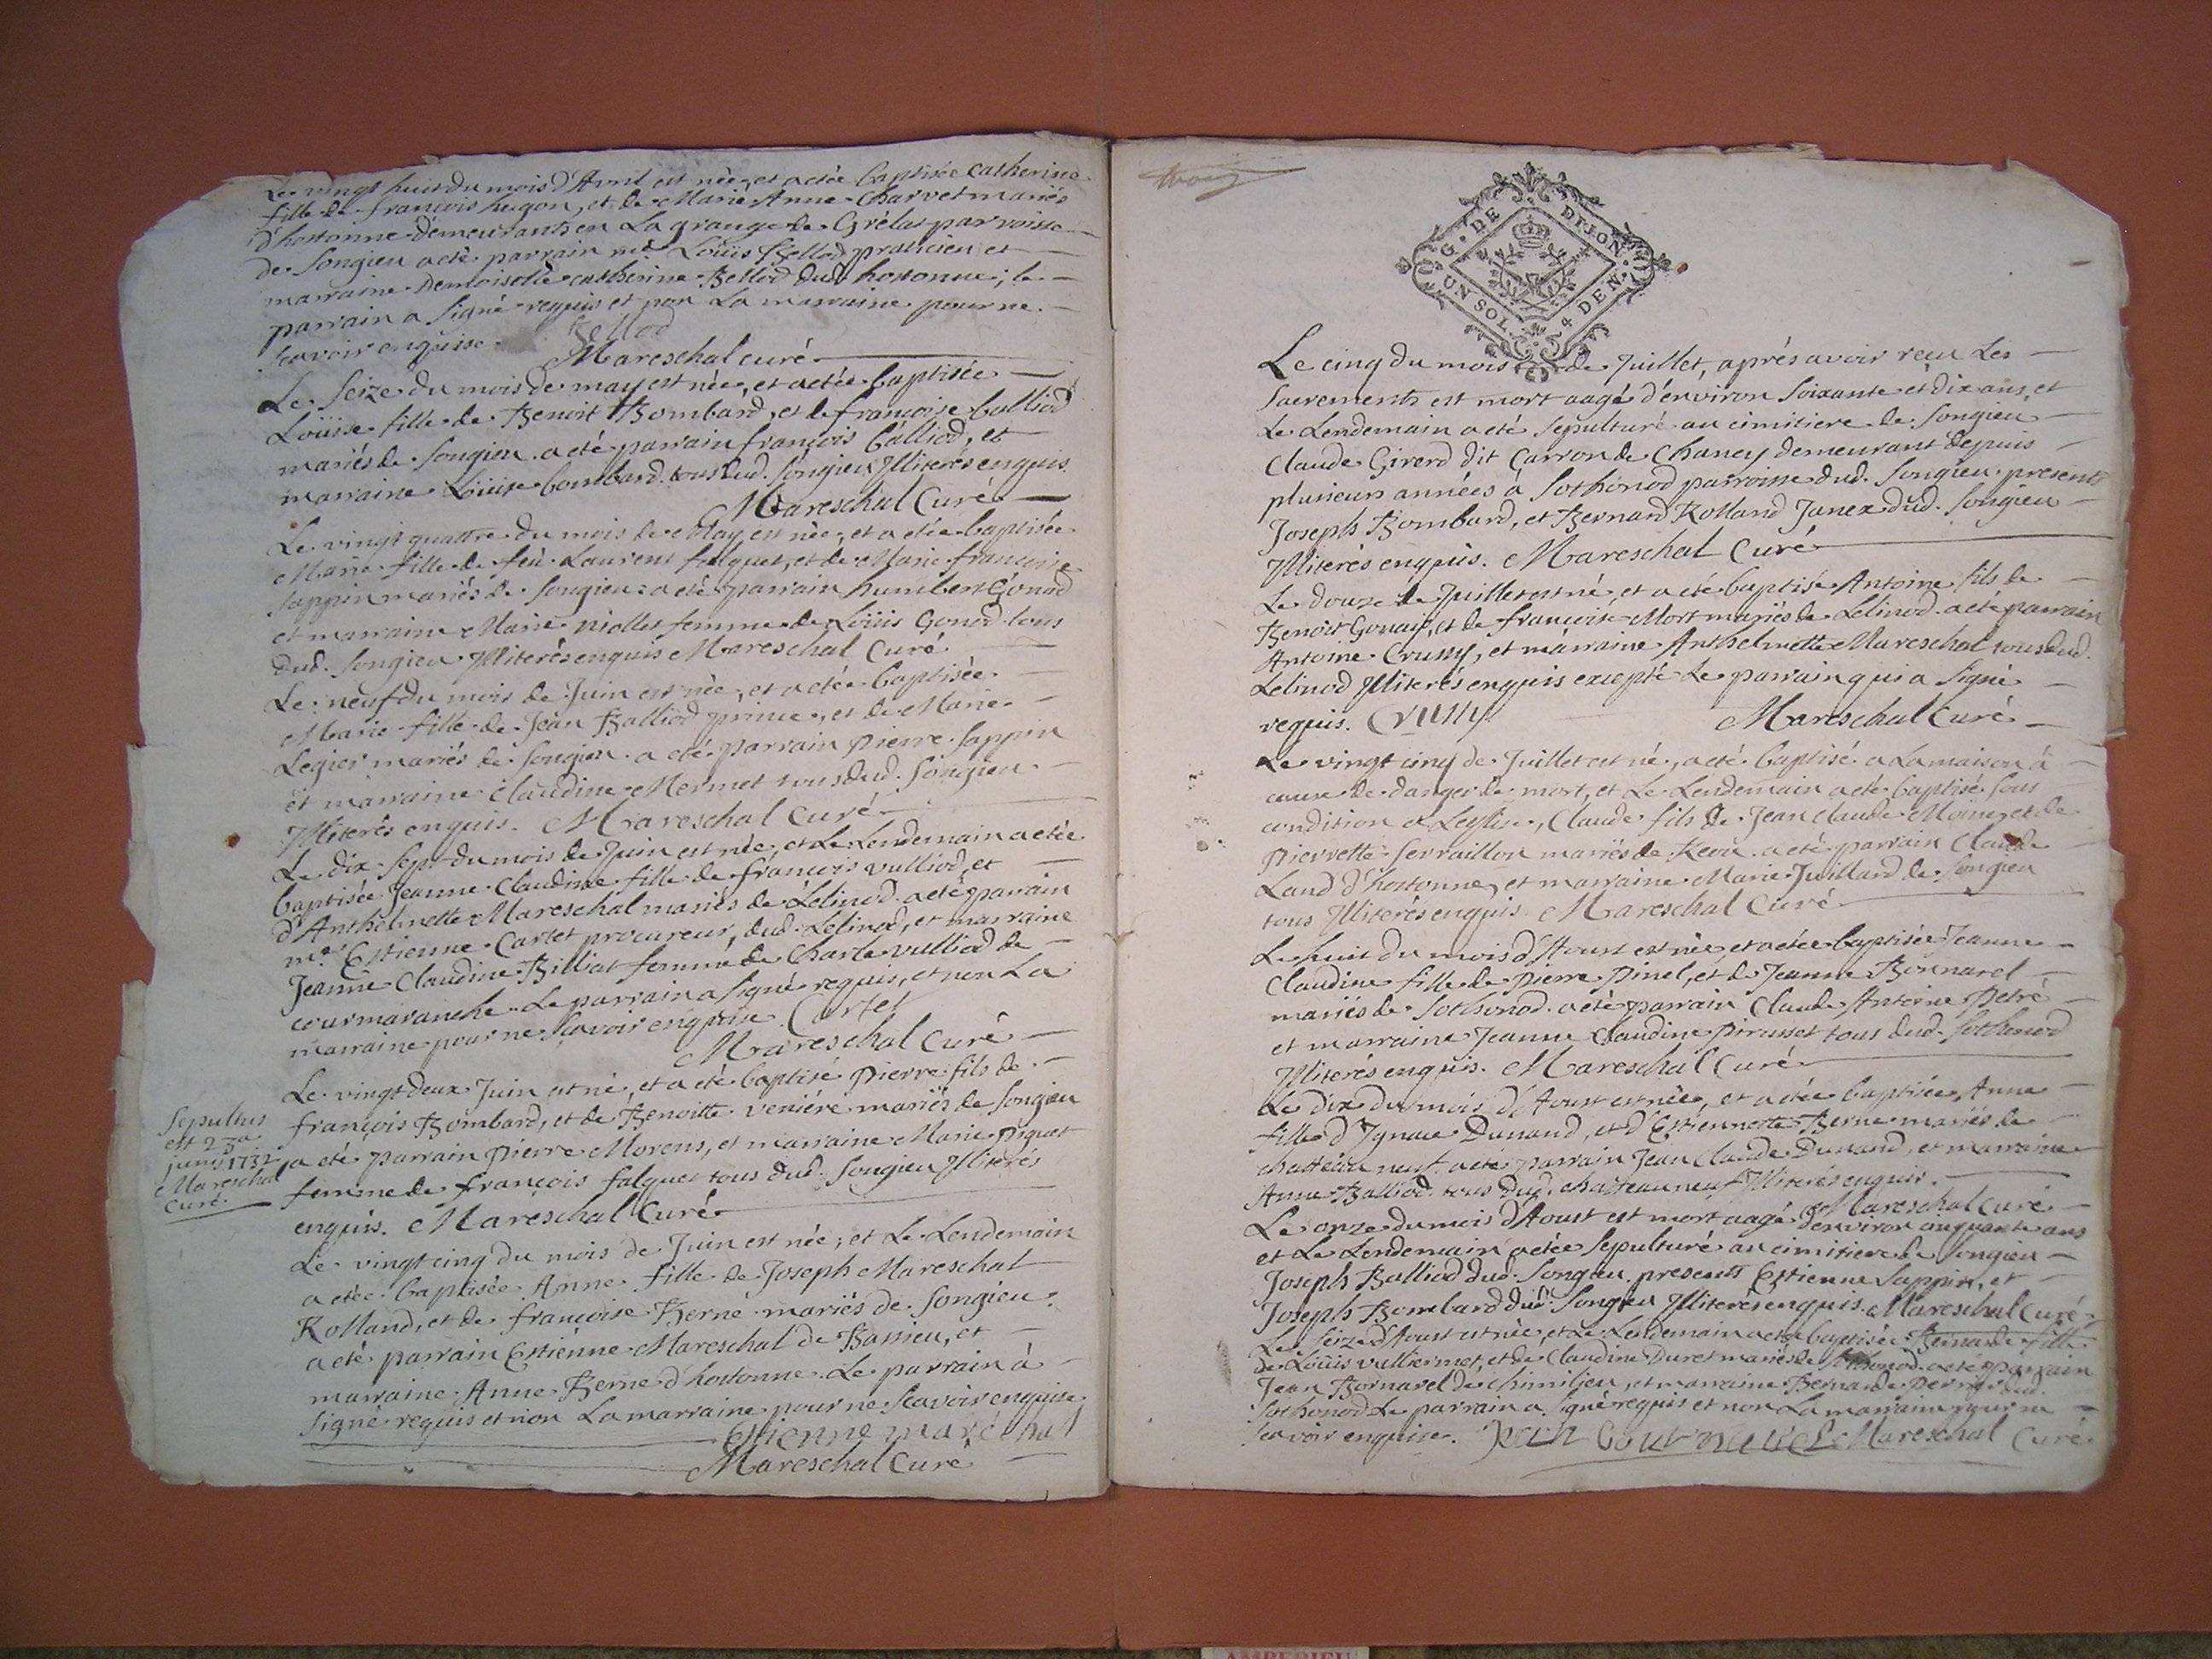 Le vingt huit du mois d'Avril est née, et a étée baptisée Catherine
fille de françois hugon, et de Marie Anne Charvet mariés
d'hostonne demeurants en La grange de Grélas parroisse
de Songieu a été parrain mr. Loüis Bellod praticien et
marraine Demoiselle catherine Bellod dud. hostonne; le
parrain a signé requis et non La marraine pour ne
scavoir enquise. Bellod
Mareschal curé
Le Seize du mois de may est née, et a étée baptisée
Loüise fille de Benoit Bombard, et de françoise balliod
mariés de Songieu. a été parrain françois balliod, et
marraine Loüise bombard. tous dud. Songieu Illiterés enquis.
Mareschal Curé
Le vingt quattre du mois de May est née, et a étée baptisée
Marie fille de feu Laurens falquet, et de Marie françoise
Sappin mariés de Songieu. a été parrain humbert Gonod
et marraine Marie piollet femme de Loüis Gonod tous
dud. Songieu Illiterés enquis Mareschal Curé
Le neuf du mois de Juin est née, et a étée baptisée
Marie fille de Jean Balliod prince, et de Marie
Legier mariés de Songieu. a été parrain pierre Sappin
et marraine claudine Mermet tous dud. Songieu
Illiterés enquis. Mareschal Curé
Le dix sept du mois de Juin est née, et Le Lendemain a étée
baptisée Jeanne Claudine fille de françois vulliod, et
d'Anthelmette Mareschal mariés de Lélinod. a été parrain
me. Estienne Cartet procureur, dud. Lelinod, et marraine
Jeanne Claudine Billiat femme de Charle vulliod de
courmaranche. Le parrain a signé requis, et non La
marraine pour ne scavoir enquise. Cartet
Mareschal Curé
Le vingt deux Juin est né, et a été baptisé pierre fils de
françois Bombard, et de Benoitte veniére mariés de Songieu
a été parrain pierre Morens, et marraine Marie piquet
femme de françois falquet tous dud. Songieu Illiterés
enquis. Mareschal Curé
Sepultus
est 23a
junii 1732
Mareschal
Curé
Le vingt cinq du mois de Juin est née, et Le Lendemain
a étée baptisée Anne fille de Joseph Mareschal
Rolland, et de françoise Berne mariés de Songieu.
a été parrain Estienne Mareschal de Bassieu, et
marraine Anne Berne d'hostonne. Le parrain à
signé requis et non La marraine pour ne Scavoir enquise
Estienne maréchal
Mareschal Curé
G. DE DIJON
UN SOL. 4 DEN.
Le cinq du mois de Juillet, aprés avoir reçu Les
Sacrements est mort aagé d'environ Soixante et dix ans, et
Le Lendemain a été Sepulturé au cimitiere de Songieu
Claude Girerd dit Carron de Chaney demeurant depuis
plusieurs années à Sothonod parroisse dud. Songieu presents
Joseph Bombard, et Bernard Rolland Janex dud. Songieu
Illiterés enquis. Mareschal Curé
Le douze de Juillet est né, et a été baptisé Antoine fils de
Benoit Gonay, et de françoise Mort mariés de Lelinod. a été parrain
Antoine Crussy, et marraine Anthelmette Mareschal tous dud.
Lelinod Illiterés enquis excepté Le parrain qui a Signé
requis. Crussy Mareschal Curé
Le vingt cinq de Juillet est né, a été baptisé a La maison à
cause de danger de mort, et Le Lendemain a été baptisé sous
condition a Leglise, Claude fils de Jean claude Moine, et de
pierrette Serraillon mariés de a été parrain Claude
Land d'hostonne, et marraine Marie Juillard de Songieu
tous Illiterés enquis Mareschal Curé
Le huit du mois d'Aoust est née, et a étée baptisée Jeanne
Claudine fille de pierre pinel, et de Jeanne Bonnarel
mariés de Sothonod. a été parrain Claude Antoine petré
et marraine Jeanne Claudine pirrusset tous dud. Sothonod
Illiterés enquis. Mareschal Curé
Le dix du mois d'Aoust est née, et a étée baptisée Anne
fille d'Ignace Dunand, et d'Estiennette Berne mariés de
chatteauneuf a été parrain Jean Claude Dunand, et marraine
Anne Balliod tous dud. chatteauneuf Illiterés enquis.
Mareschal Curé
Le onze du mois d'Aoust est mort aagé d'environ cinquante ans
et Le Lendemain a étée Sepulturé au cimitiere de Songieu
Joseph Balliod dud. Songieu. presents Estienne Sappin, et
Joseph Bombard dud. Songieu Illiterés enquis. Mareschal Curé
Le Seize d'Aoust est née, et Le Lendemain a étée baptisée Bernarde fille
de Loüis vulliermet, et de Claudine Duret mariés de Sothonod. a été parrain
Jean Bornarel de chimilieu, et marraine Bernarde dud.
Sothonod Le parrain a signé requis et non La marraine pour ne
scavoir enquise. Mareschal Curé